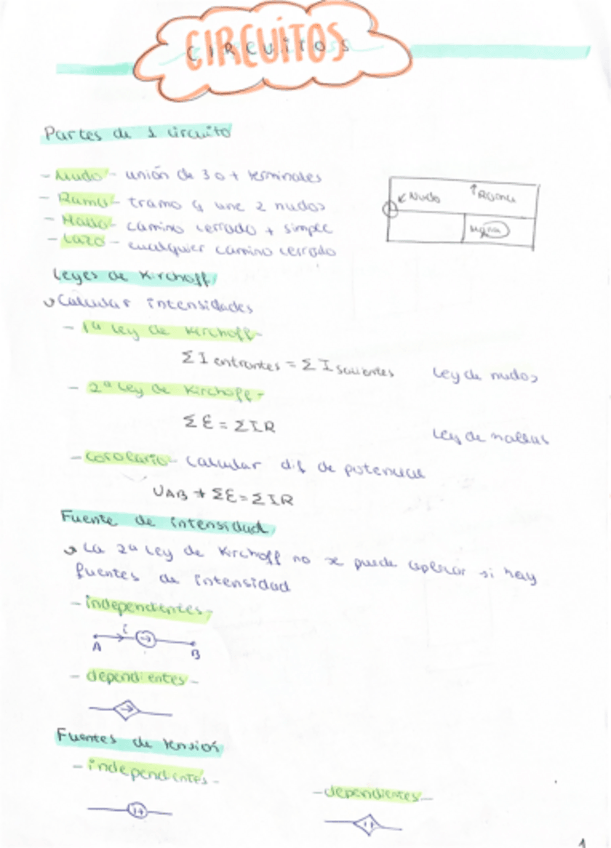 CIRCUITOS
Partes de 1 circuito
- Nudo - unión de 3 o + terminales
- Rama - tramo q une 2 nudos
- Malla - camino cerrado + simple
- Lazo - cualquier camino cerrado
Nudo
↑Rama
Malla
Leyes de Kirchoff
Calcular intensidades
- 1ª Ley de Kirchoff -
Σ I entrantes = Σ I salientes Ley de nudos
- 2ª Ley de Kirchoff -
Σ Ɛ = Σ I R
Ley de mallas
- Corolario - Calcular dif de potencial
UAB + ΣƐ = ΣIR
Fuente de intensidad
La 2ª Ley de Kirchoff no se puede aplicar si hay
fuentes de intensidad
- independientes -
i
A B
- dependientes -
Fuentes de tensión
- independientes -
- dependientes -
1